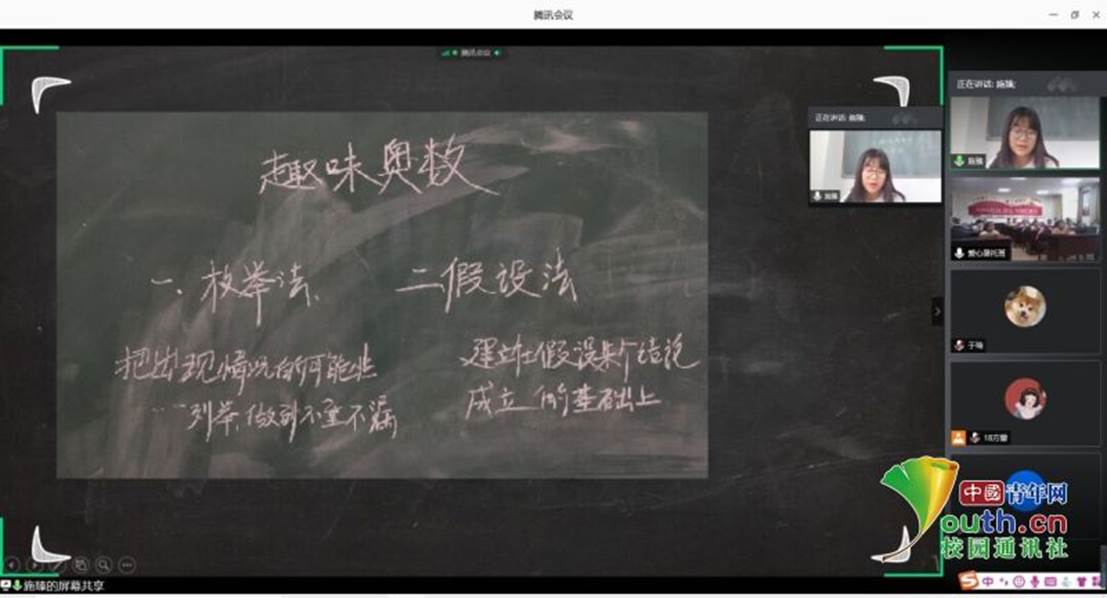 腾讯会议
腾讯会议
正在讲话: 施臻;
施臻
正在讲话: 施臻;
施臻
趣味奥数
一、枚举法、
二假设法
把出现情况的可能性
一列举,做到不重不漏
建立在假设某个结论
成立的基础上
爱心暑托班
于瑞
中國青年网
youth.cn
校园通讯社
施臻的屏幕共享
中